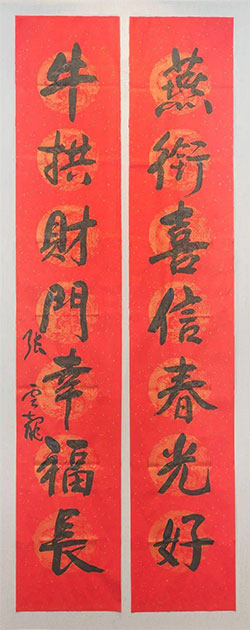 燕銜喜信春光好
牛拱財門幸福長
張雲龍